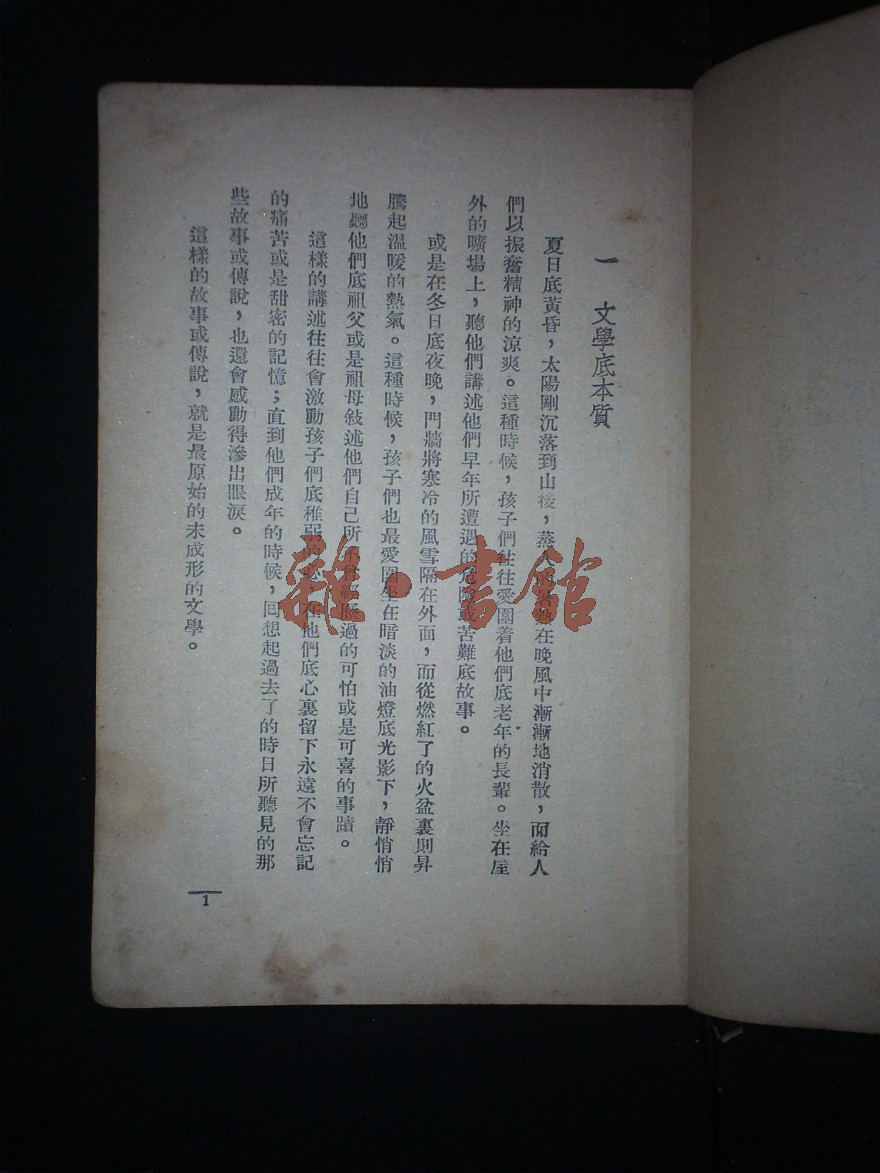 一　文學底本質
夏日底黃昏，太陽剛沉落到山後，蒸人的暑熱在晚風中漸漸地消散，而給人
們以振奮精神的涼爽。這種時候，孩子們往往愛圍着他們底老年的長輩。坐在屋
外的曠場上，聽他們講述他們早年所遭遇的危險或苦難底故事。
或是在冬日底夜晚，門牆將寒冷的風雪隔在外面，而從燃紅了的火盆裏則昇
騰起溫暖的熱氣。這種時候，孩子們也最愛圍坐在暗淡的油燈底光影下，靜悄悄
地聽他們底祖父或是祖母敍述他們自己所經歷過的可怕或是可喜的事蹟。
這樣的講述往往會激動孩子們底稚弱的心，在他們底心裏留下永遠不會忘記
的痛苦或是甜密的記憶；直到他們成年的時候，囘想起過去了的時日所聽見的那
些故事或傳說，也還會感動得滲出眼淚。
這樣的故事或傳說，就是最原始的未成形的文學。
1
雜·書館